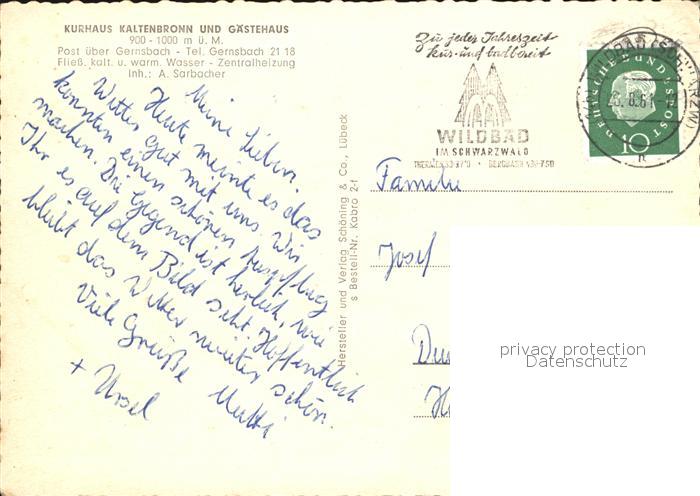 KURHAUS KALTENBRONN UND GÄSTEHAUS
900 - 1000 m ü. M.
Post über Gernsbach - Tel. Gernsbach 21 18
Fließ. kalt. u. warm. Wasser - Zentralheizung
Inh.: A. Sarbacher
Meine Lieben.
Heute meinte es das
Wetter gut mit uns. Wir
konnten einen schönen Ausflug
machen. Die Gegend ist herlich, wie
Ihr es auf dem Bild seht. Hoffentlich
bleibt das Wetter weiter schön.
Viele Grüße Mutti
+ Ursel
Hersteller und Verlag Schöning & Co., Lübeck
s Bestell-Nr. Kabro 2-f
Zu jeder Jahreszeit
kur- und badbereit
WILDBAD
IM SCHWARZWALD
WILDBAD (SCHWARZW)
DEUTSCHE BUNDESPOST
10
Familie
Josef
privacy protection
Datenschutz